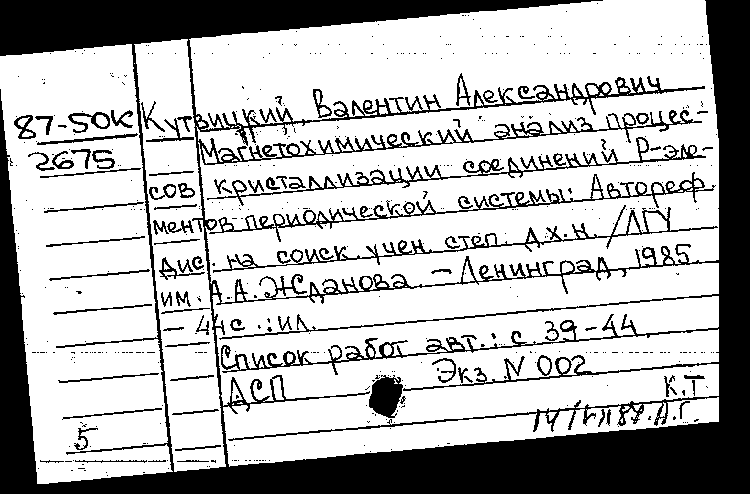 87-50К Кутвицкий, Валентин Александрович
2675 Магнетохимический анализ процес-
сов кристаллизации соединений Р-эле-
ментов периодической системы: Автореф.
дис. на соиск. учен. степ. д.х.н. /ЛГУ
им. А.А. Жданова. - Ленинград, 1985.
- 44с.: ил.
Список работ авт.: с. 39-44.
ДСП Экз. N 002
К.Т
5 А.Г.